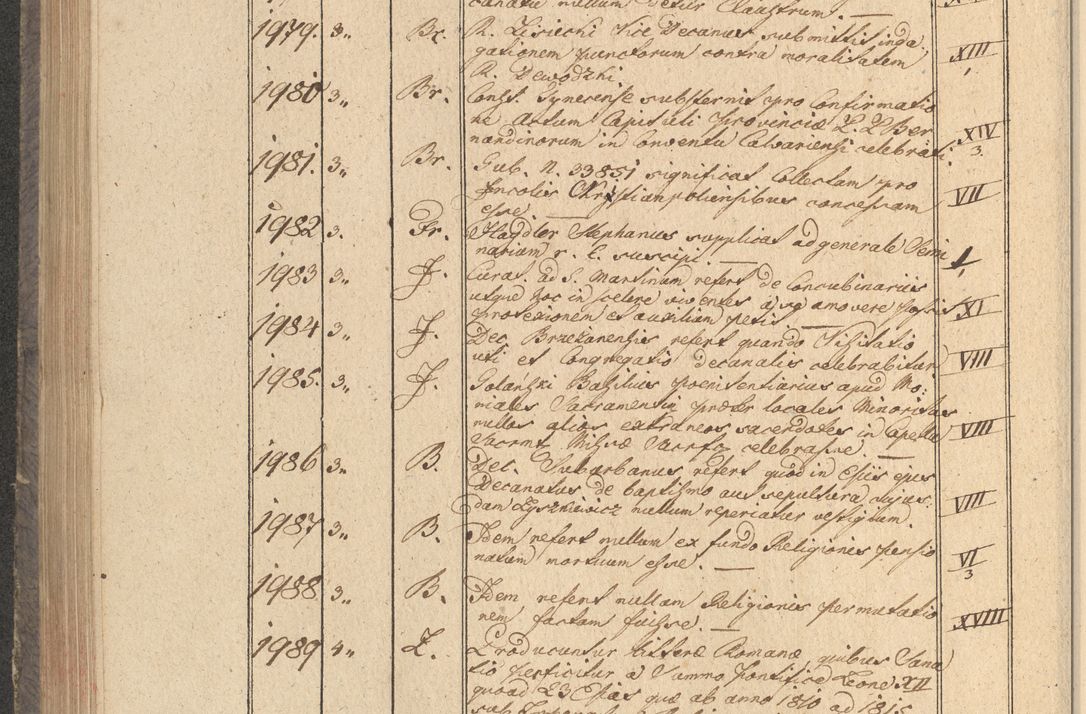 canatu nullum detur Claustrum. —
1979. 3„ Br. R. Lisiecki Vice Decanus submittit inda„
gationem punctorum contra moralitatem XIII
R. Dewodzki 1
1980 3„ Br. Cons. Tynecense substernit pro Confirmatio
ne Actum Capituli Provinciæ L. L. Ber XIV
nardinorum in Conventu Calvariensi celebrati. 3.
1981. 3„ Br. Gub. N. 33851 significat Collectam pro
Incolis Christianpoliensibus concessam VII
esse. —
1982 3. Fr. Stephanus supplicat ad generale Semi
narium r. l. suscipi. — 1
1983 3„ J. Curat. ad S. Martinum refert de Concubinariis
utque hoc in scelere viventes a se amovere possit XI
protexionem et auxilium petit —
1984 3„ J. Dec. Brzezanensis refert quando Visitatio
uti et Congregatio decanalis celebrabitur VIII
1985. 3„ J. Golanski Basilius poenitentiarius apud Mo:
niales Sacramentin præter locales Minoritas
nullos alios extraneos sacerdotes in Capella VIII
Sacrmt Missæ Sacrfa celebrasse. —
1986 3„ B. Dec. Subarbanus refert quod in Esiis ejus
Decanatus de baptismo aut sepultura cujus: VIII
dam Łyszkiewicz nullum reperiatur vestigium.
1987 3„ B. Idem refert nullum ex fundo Religionis pensio VI
natum mortuum esse. — 3
1988 3„ B. Idem refert nullam Religionis permutatio
nem factam fuisse. — XVIII
1989 4„ L. Producuntur Litteræ Romanæ, quibus Sana
tio perficitur a Summo Pontifice Leone XII
quoad 23 Esias quæ ab anno 1810 ad 1815